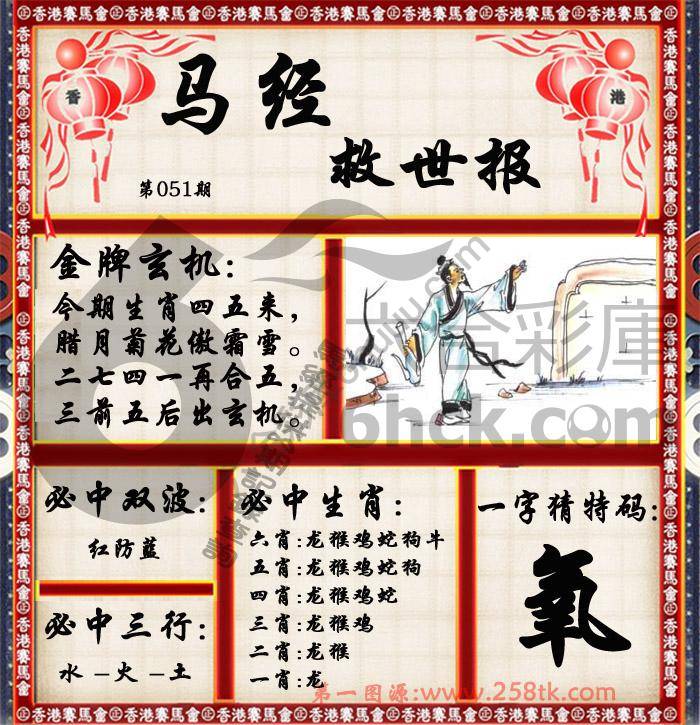 香港賽馬會
香
港
马经
救世报
第051期
金牌玄机:
今期生肖四五来,
腊月菊花傲霜雪。
二七四一再合五,
三前五后出玄机。
六合彩庫
6hck.com
必中双波:
红防蓝
必中三行:
水-火-土
必中生肖:
六肖:龙猴鸡蛇狗牛
五肖:龙猴鸡蛇狗
四肖:龙猴鸡蛇
三肖:龙猴鸡
二肖:龙猴
一肖:龙
一字猜特码:
氧
第一图源:www.258tk.com